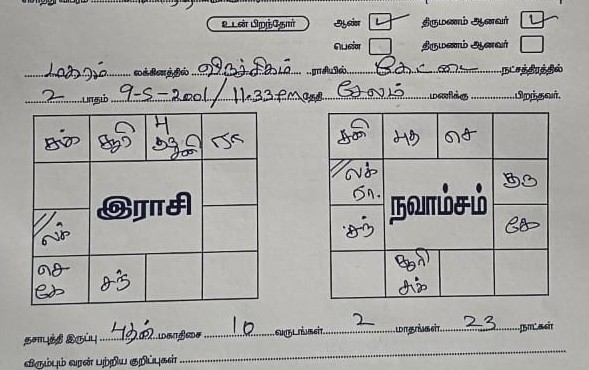 உடன் பிறந்தோர் ஆண் திருமணம் ஆனவர்
பெண் திருமணம் ஆனவர்
மகரம் லக்கினத்தில் விருச்சிகம் ராசியில் கேட்டை நட்சத்திரத்தில்
2 பாதம் 9-5-2001/11.33PM தேதி சேலம் மணிக்கு பிறந்தவர்.
சுக் சூரி பு குரு சனி ரா
சனி புத செ
லக் ரா. குரு
இராசி நவாம்சம்
லக் சந் கே
செ கே சந் சூரி சுக்
தசாபுத்தி இருப்பு புதன் மகாதிசை 10 வருடங்கள் 2 மாதங்கள் 23 நாட்கள்
விரும்பும் வரன் பற்றிய குறிப்புகள்